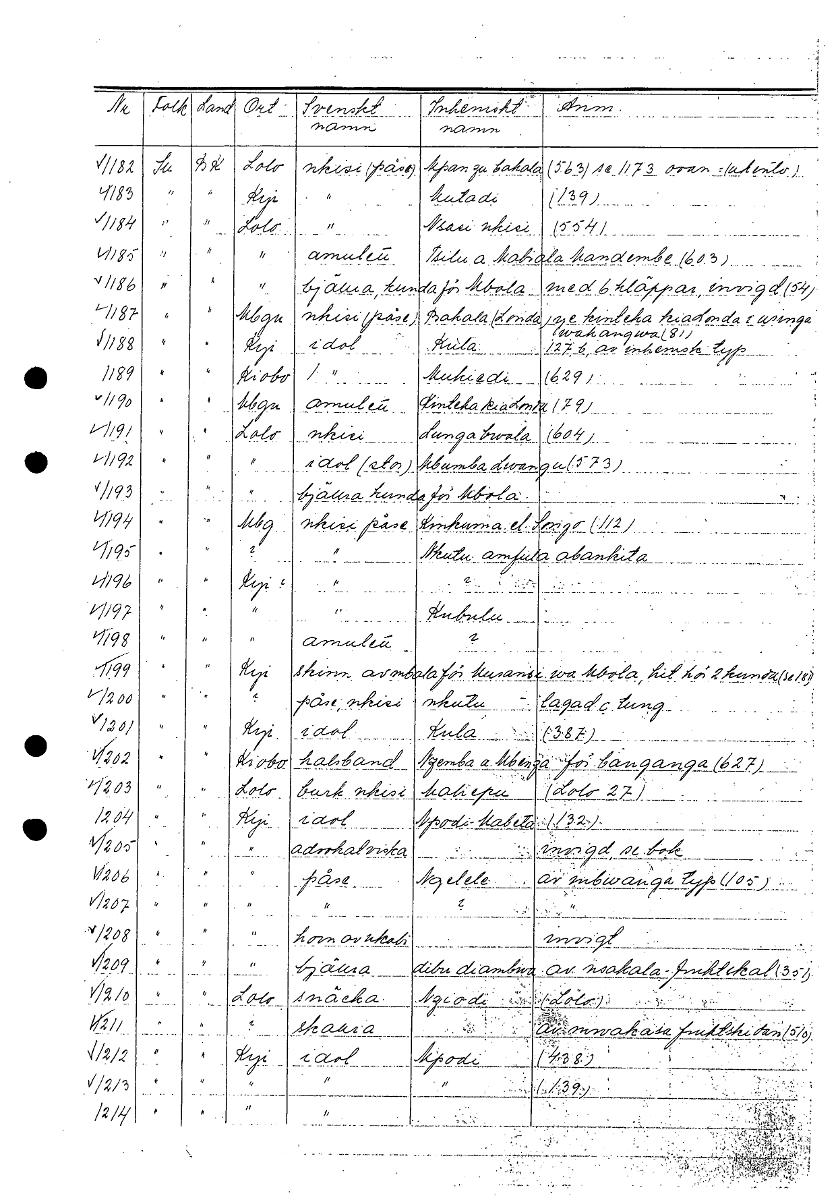 Nr Folk Land Ort Svenskt namn Inhemskt namn Anm.
√1182 Su BK Lolo nkisi (påse) Mpangu bakala (563) se 1173 ovan =(nkento)
√1183 " " Kyi " Mutadi (139)
√1184 " " Lolo " Nsasi nkisi (554)
√1185 " " " amulett Tsilu a Mabiala Mandembe (603)
√1186 " " " bjällra, kunda för Mbola med 6 kläppar, invigd (54)
√1187 " " Mbgu nkisi (påse) Bakala (Londa) ye kinteka kia Londa i usinga
wakangwa (81)
√1188 " " Kyi idol Kula 127 b, av inhemsk typ
1189 " " Kiobo " Mukiedi (629)
√1190 " " Mbgu amulett Kinteka kia Londa (79)
√1191 " " Lolo nkisi Lunga bwala (604)
√1192 " " " idol (stor) Mbumba Lwangu (573)
√1193 " " " bjällra kunda för Mbola
√1194 " " Mbg nkisi påse Kinkuma el. Songo (112)
√1195 " " ? " Nkutu amfuta abankita
√1196 " " Kyi ? " ?
√1197 " " " " Kubulu
√1198 " " " amulett ?
√1199 " " Kyi skinn av mbala för Musansi wa Mbola, hit hör 2 kunda (se 181)
√1200 " " " påse, nkisi nkutu - lagad o tung
√1201 " " Kyi idol Kula (387)
√1202 " " Kiobo halsband Ngemba a Mbenza för banganga (627)
√1203 " " Lolo burk nkisi Maliepu (Lolo 27)
1204 " " Kyi idol Mpodi Mabeta (132)
√1205 " " " advokatviska invigd, se bok
√1206 " " " påse Ngelele av mbwanga typ (105)
√1207 " " " " ? "
√1208 " " " horn av nkabi invigt
√1209 " " " bjällra dibu diambwa av nsakala-fruktskal (351)
√1210 " " Lolo snäcka Ngiodi (Lolo)
√1211 " " " skallra av mwakasa fruktskidan (510)
√1212 " " Kyi idol Mpodi (438)
√1213 " " " " " (139)
1214 " " " "